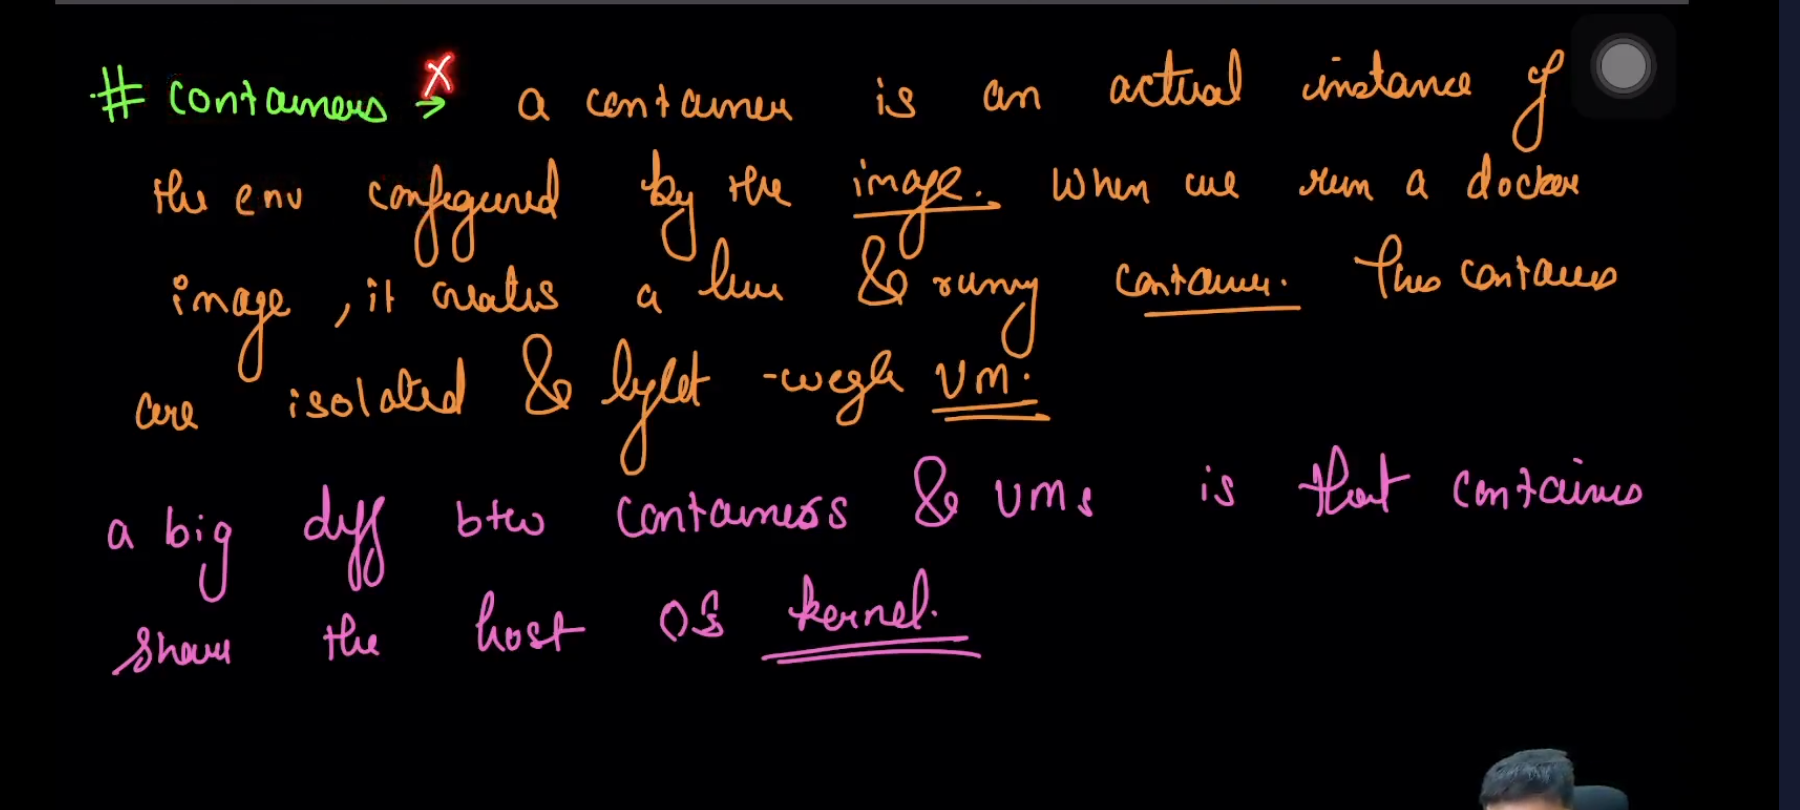 # containers → a container is an actual instance of
the env configured by the image. When we run a docker
image, it creates a live & runny container. This containers
are isolated & light-weigh VM.
a big diff btw containers & VMs is that containers
share the host OS kernel.